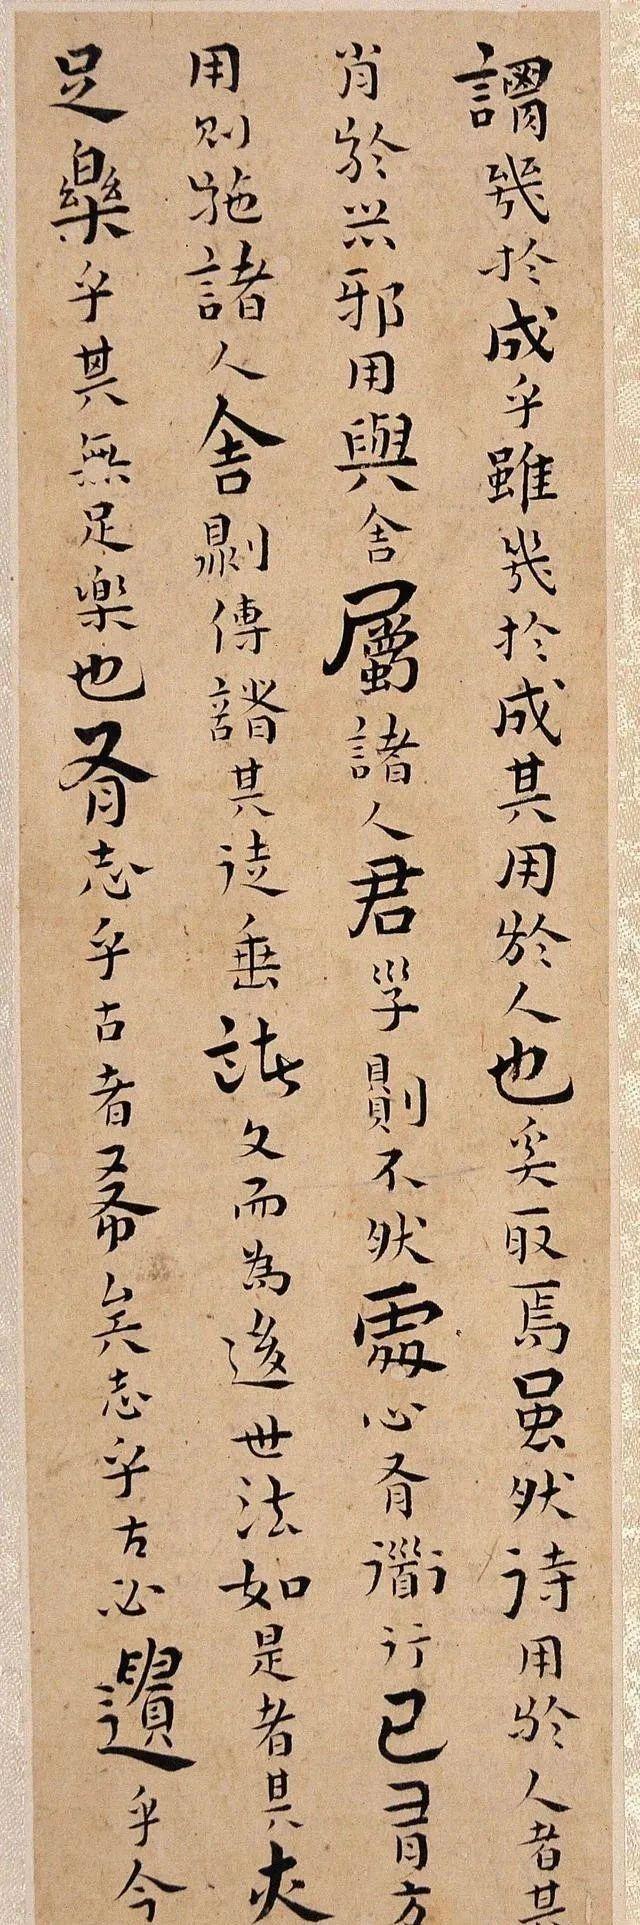 謂幾於成乎雖幾於成其用於人也奚取焉虽然待用於人者其
肖於器邪用與舍屬諸人君子則不然處心有道行己有方
用则施諸人舍則傳諸其徒垂諸文而為後世法如是者其亦
足樂乎其無足楽也有志乎古者希矣志乎古必遺乎今